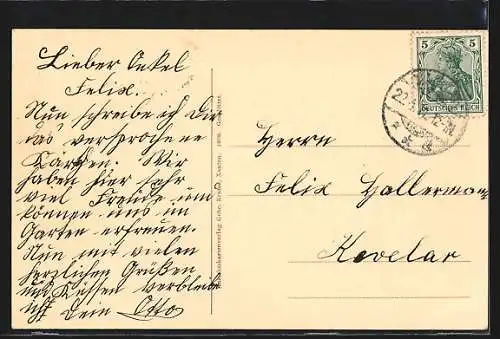 Lieber Onkel
Felix.
Nun schreibe ich Dir
das versprochene
Karten. Wir
haben hier sehr
viel Freude um
können uns im
Garten erfreuen.
Nun mit vielen
herzlichen Grüßen
und Küssen verbleibe
ich Dein Otto
Herrn
Felix Hallermann
Kevelar
5 5
DEUTSCHES REICH